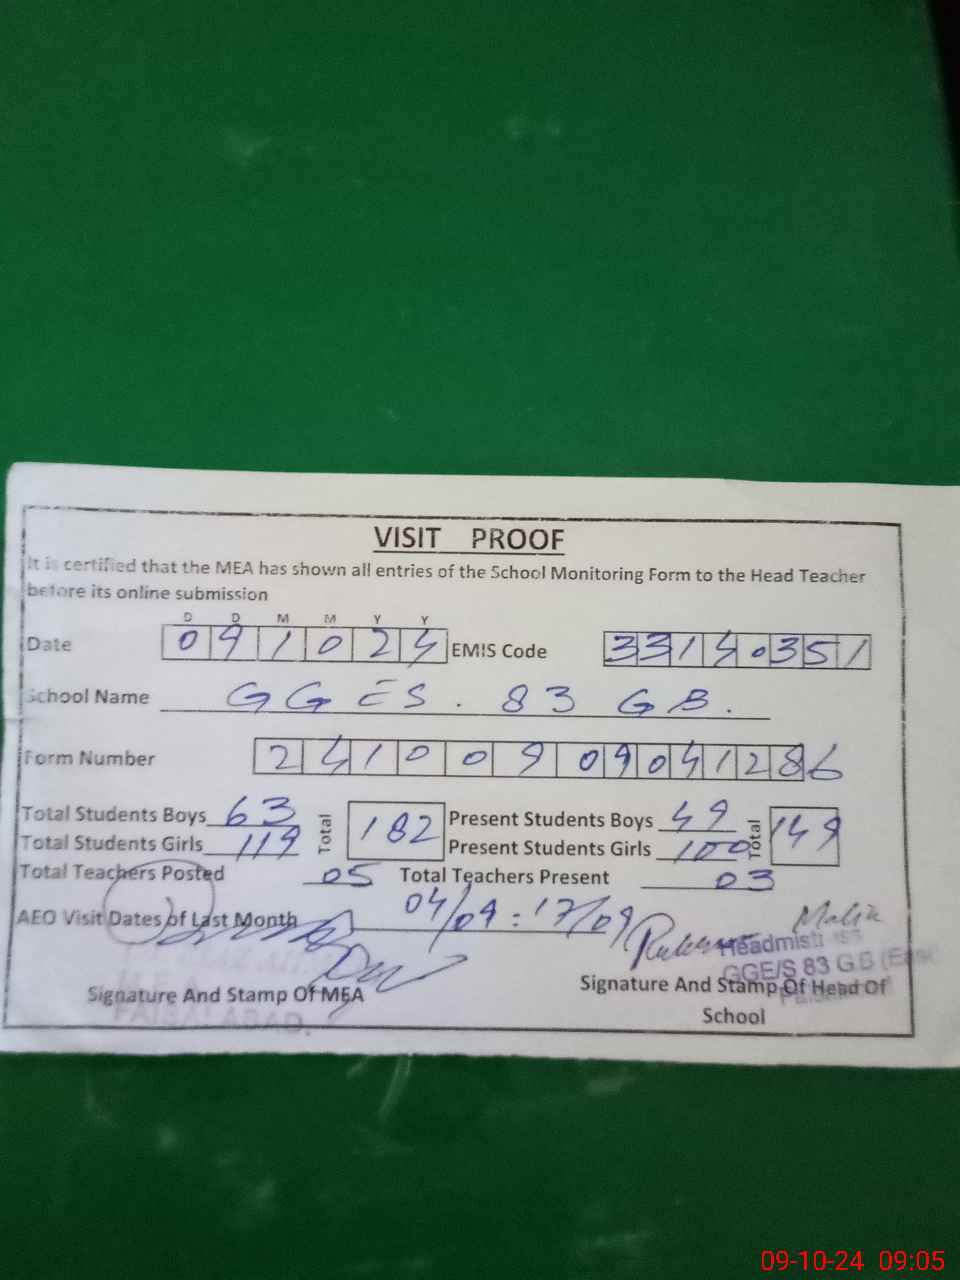 VISIT PROOF
It is certified that the MEA has shown all entries of the School Monitoring Form to the Head Teacher
before its online submission
D D M M Y Y
Date 091024 EMIS Code 33140351
School Name GGES. 83 GB.
Form Number 24100909041286
Total Students Boys 63 Total 182 Present Students Boys 49 Total 149
Total Students Girls 119 Present Students Girls 100
Total Teachers Posted 05 Total Teachers Present 03
AEO Visit Dates of Last Month 04/09 : 17/09
Malik
Headmistress
GGE/S 83 G.B (East)
Signature And Stamp Of MEA Signature And Stamp Of Head Of
School
FAISALABAD.
09-10-24 09:05